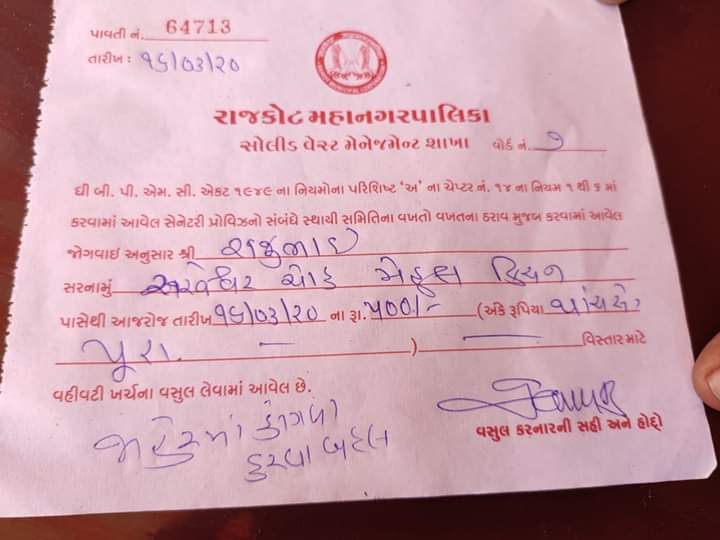 પાવતી નં. 64713
તારીખ : ૧૬/૦૩/૨૦
રાજકોટ મહાનગરપાલિકા
સોલીડ વેસ્ટ મેનેજમેન્ટ શાખા વોર્ડ નં. ૭
ધી બી. પી. એમ. સી. એકટ ૧૯૪૯ ના નિયમોના પરિશિષ્ટ ‘અ’ ના ચેપ્ટર નં. ૧૪ ના નિયમ ૧ થી ૬ માં
કરવામાં આવેલ સેનેટરી પ્રોવિઝનો સંબંધે સ્થાયી સમિતિના વખતો વખતના ઠરાવ મુજબ કરવામાં આવેલ
જોગવાઇ અનુસાર શ્રી રાજુભાઇ
સરનામું ચોક કિચન
પાસેથી આજરોજ તારીખ ૧૬/૦૩/૨૦ ના રૂા. ૫૦૦/- (અંકે રૂપિયા પાંચસો
પૂરા. — ) — વિસ્તાર માટે
વહીવટી ખર્ચના વસુલ લેવામાં આવેલ છે.
જાહેરમાં ગંદકી
કરવા બદલ
વસુલ કરનારની સહી અને હોદ્દો